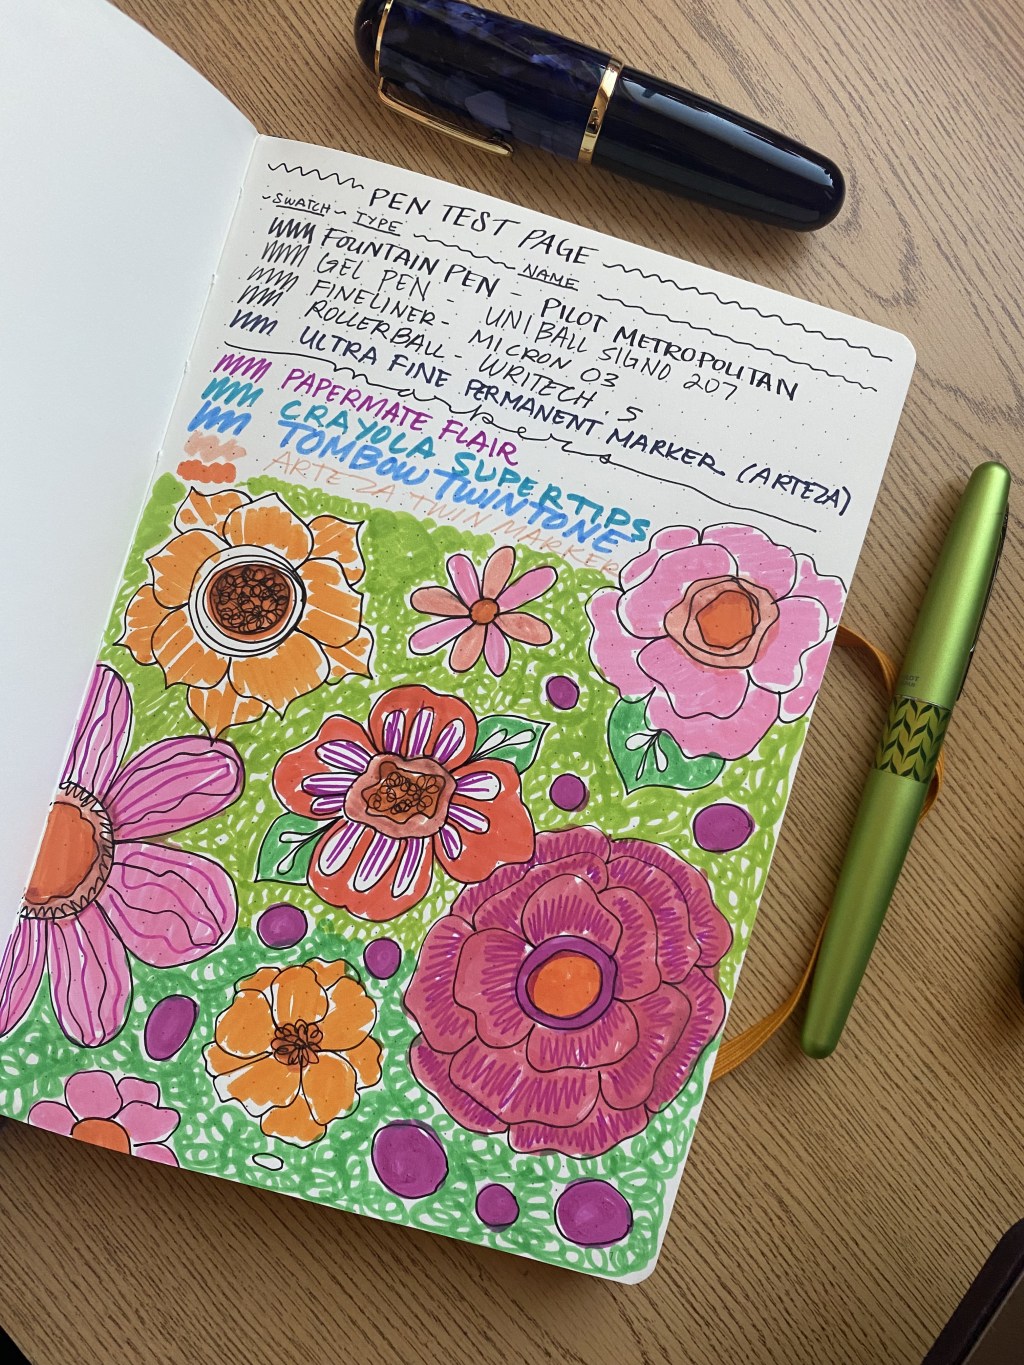 PEN TEST PAGE
SWATCH TYPE NAME
FOUNTAIN PEN - PILOT METROPOLITAN
GEL PEN - UNIBALL SIGNO 207
FINELINER - MICRON 03
ROLLERBALL - WRITECH .5
ULTRA FINE PERMANENT MARKER (ARTEZA)
markers
PAPERMATE FLAIR
CRAYOLA SUPERTIPS
TOMBOW TWINTONE
ARTEZA TWIN MARKER